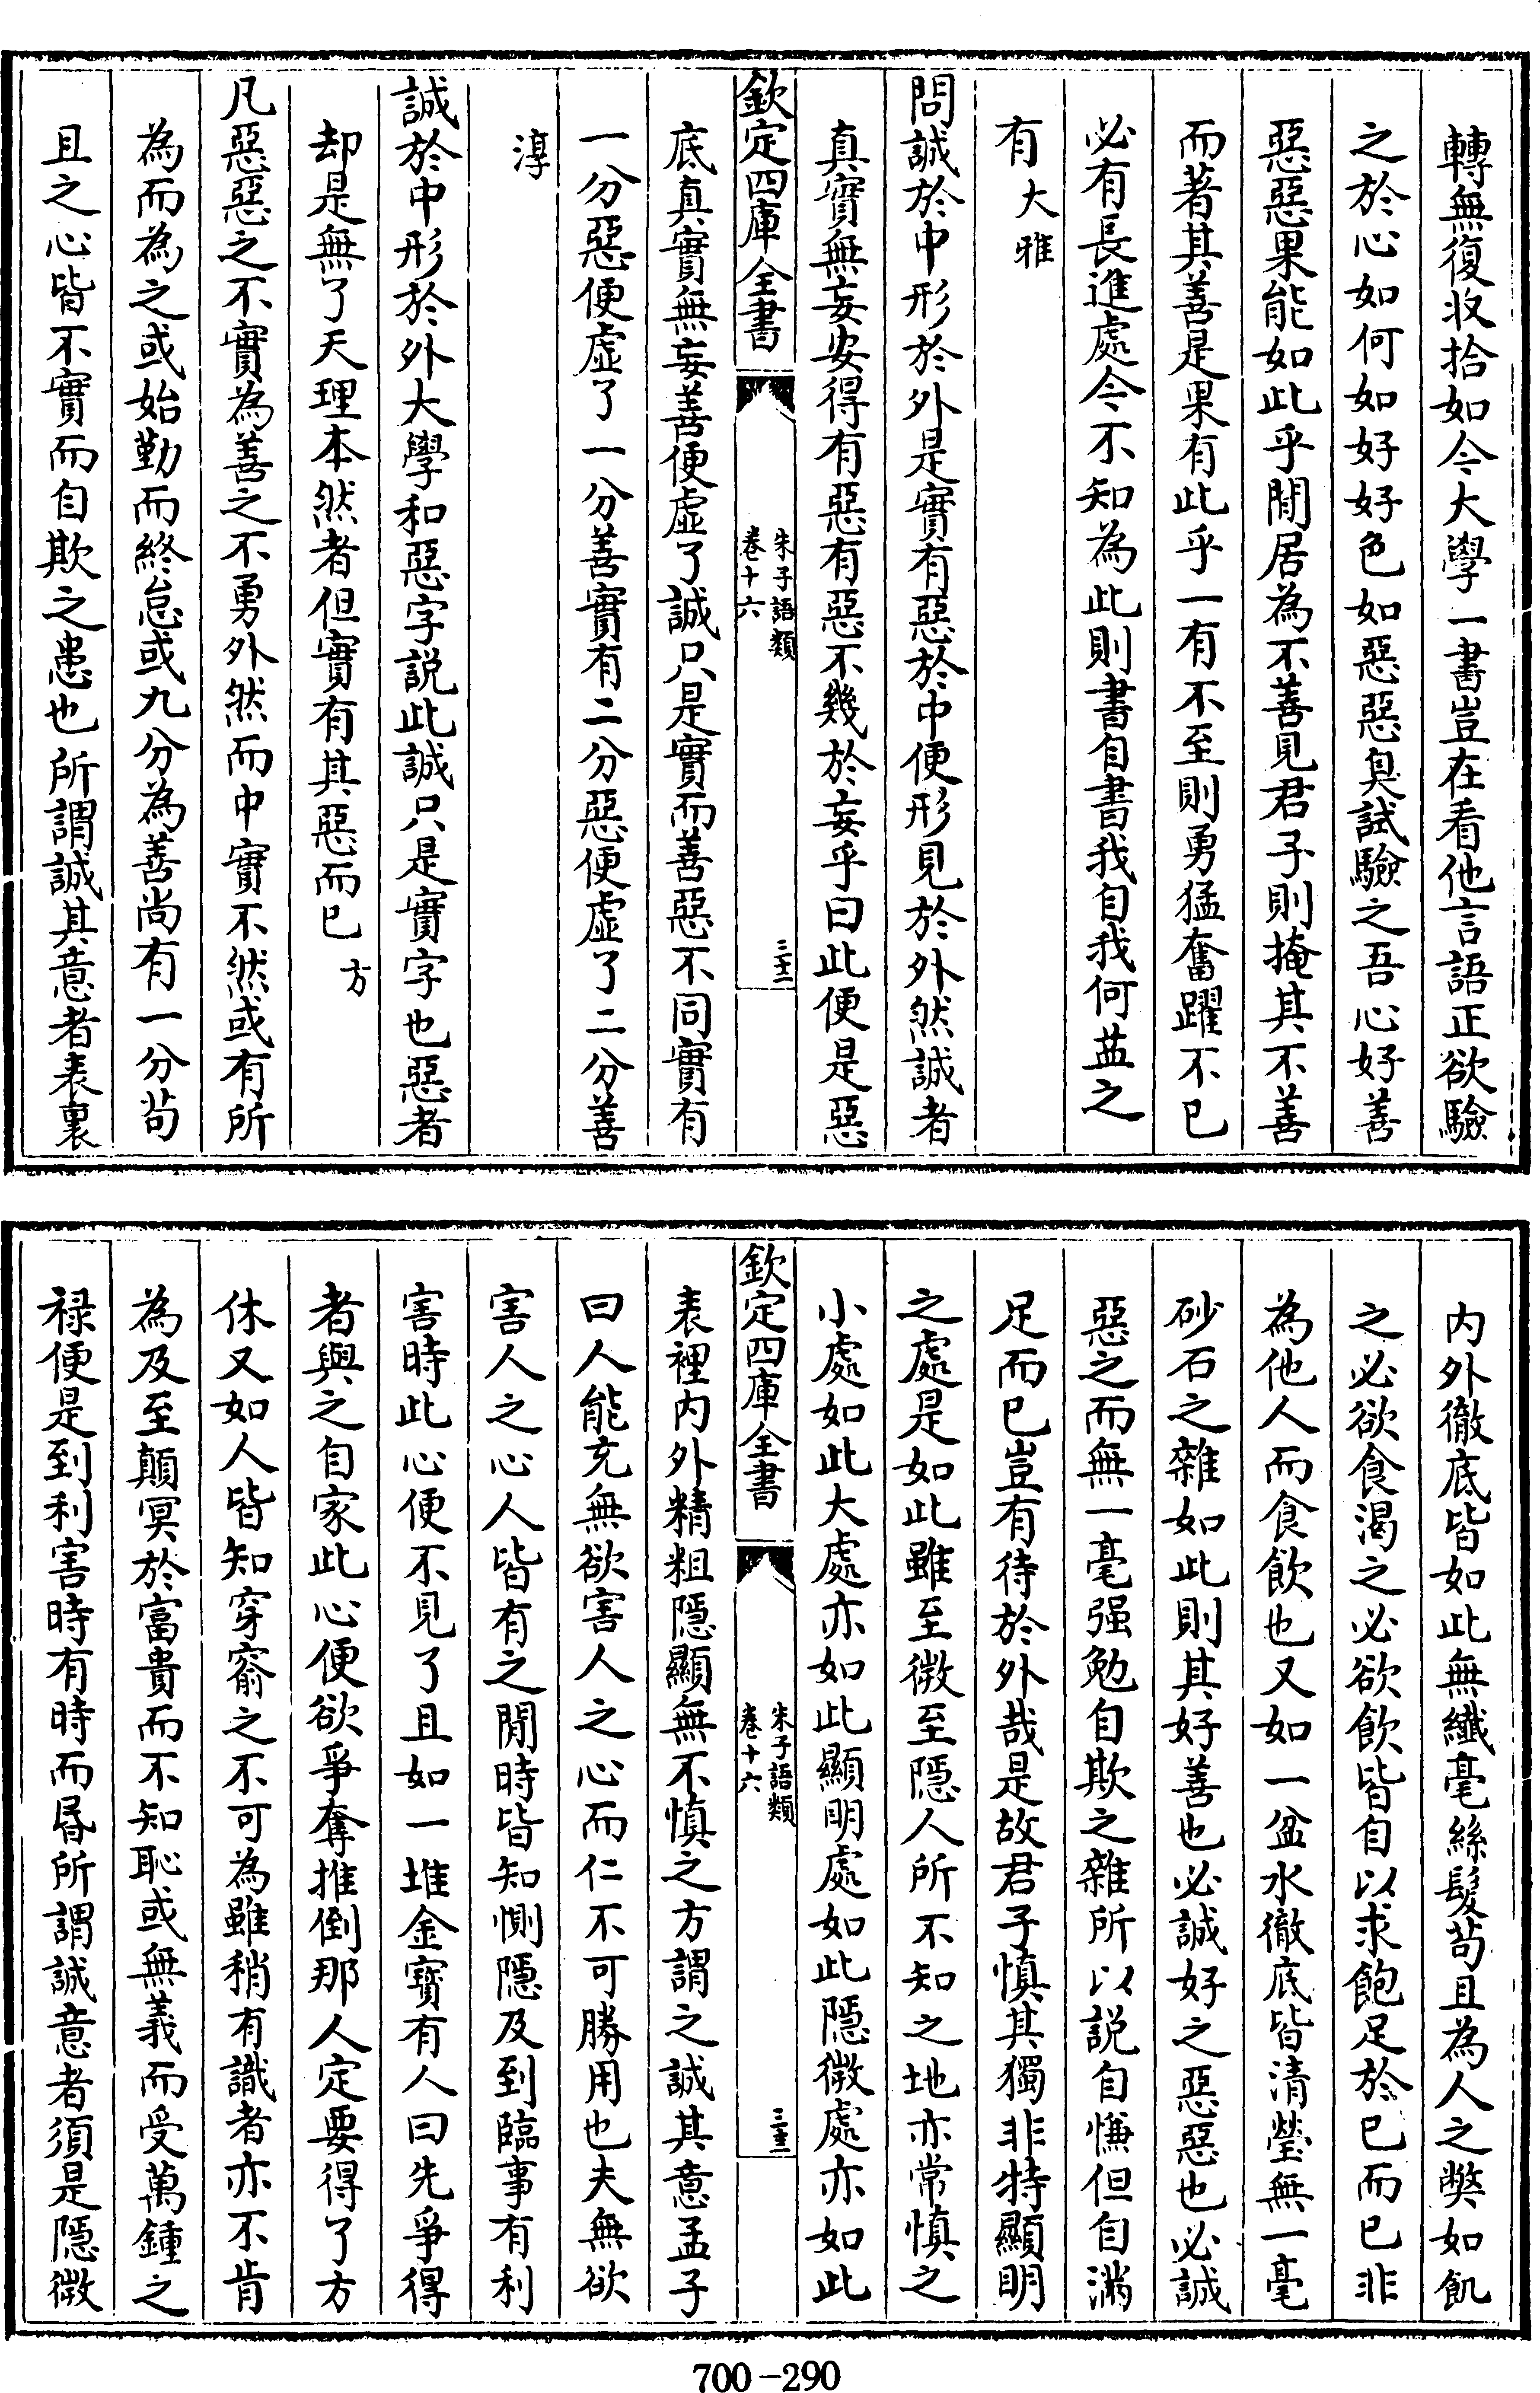 轉無復收拾如今大學一書豈在看他言語正欲驗
之於心如何如好好色如惡惡臭試驗之吾心好善
惡惡果能如此乎閒居為不善見君子則掩其不善
而著其善是果有此乎一有不至則勇猛奮躍不已
必有長進處今不知為此則書自書我自我何益之
有大雅
問誠於中形於外是實有惡於中便形見於外然誠者
真實無妄安得有惡有惡不幾於妄乎曰此便是惡
欽定四庫全書
朱子語類
卷十六
三十二
底真實無妄善便虛了誠只是實而善惡不同實有
一分惡便虛了一分善實有二分惡便虛了二分善
淳
誠於中形於外大學和惡字説此誠只是實字也惡者
却是無了天理本然者但實有其惡而已方
凡惡惡之不實為善之不勇外然而中實不然或有所
為而為之或始勤而終怠或九分為善尚有一分苟
且之心皆不實而自欺之患也所謂誠其意者表裏
內外徹底皆如此無纖毫絲髮苟且為人之弊如飢
之必欲食渴之必欲飲皆自以求飽足於已而已非
為他人而食飲也又如一盆水徹底皆清瑩無一毫
砂石之雜如此則其好善也必誠好之惡惡也必誠
惡之而無一毫强勉自欺之雜所以説自慊但自滿
足而已豈有待於外哉是故君子慎其獨非特顯明
之處是如此雖至微至隱人所不知之地亦常慎之
小處如此大處亦如此顯明處如此隱微處亦如此
欽定四庫全書
朱子語類
卷十六
三十三
表裡內外精粗隱顯無不慎之方謂之誠其意孟子
曰人能充無欲害人之心而仁不可勝用也夫無欲
害人之心人皆有之閒時皆知惻隱及到臨事有利
害時此心便不見了且如一堆金寶有人曰先爭得
者與之自家此心便欲爭奪推倒那人定要得了方
休又如人皆知穿窬之不可為雖稍有識者亦不肯
為及至顛冥於富貴而不知恥或無義而受萬鍾之
祿便是到利害時有時而昬所謂誠意者須是隱微
700-290